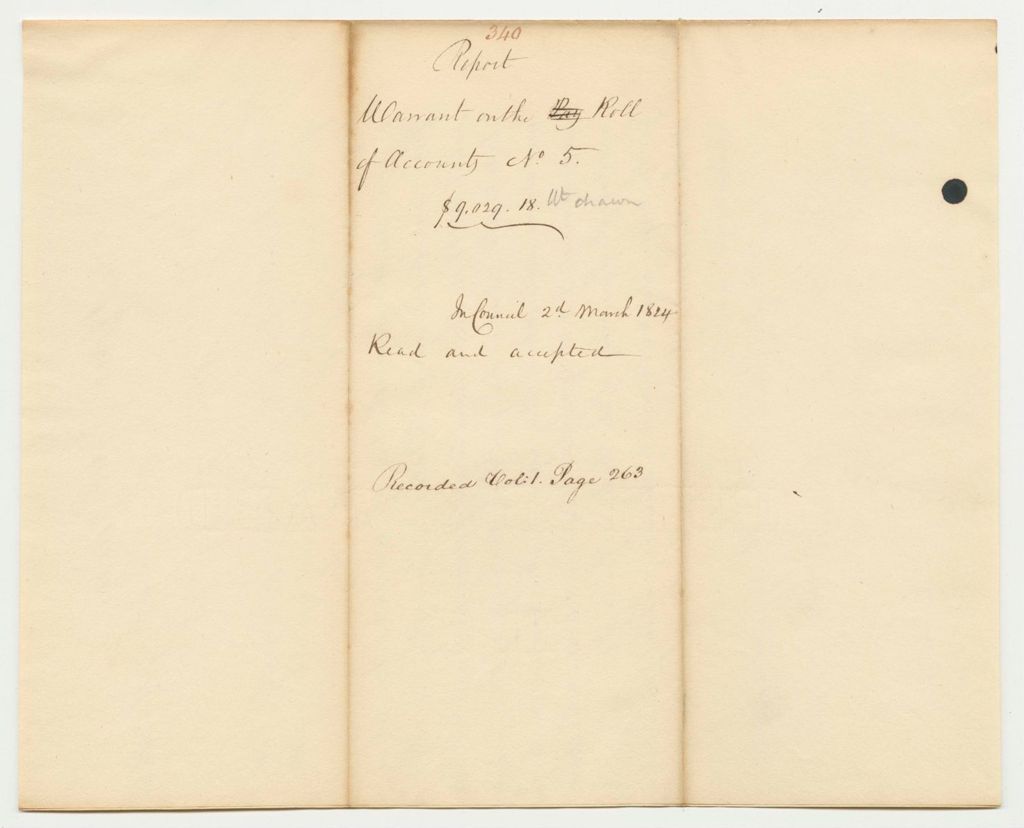 340
Report
Warrant on the Pay Roll
of Accounts No 5.
$9.029.18. Wt drawn
In Council 2d March 1824
Read and accepted
Recorded Vol: 1. Page 263